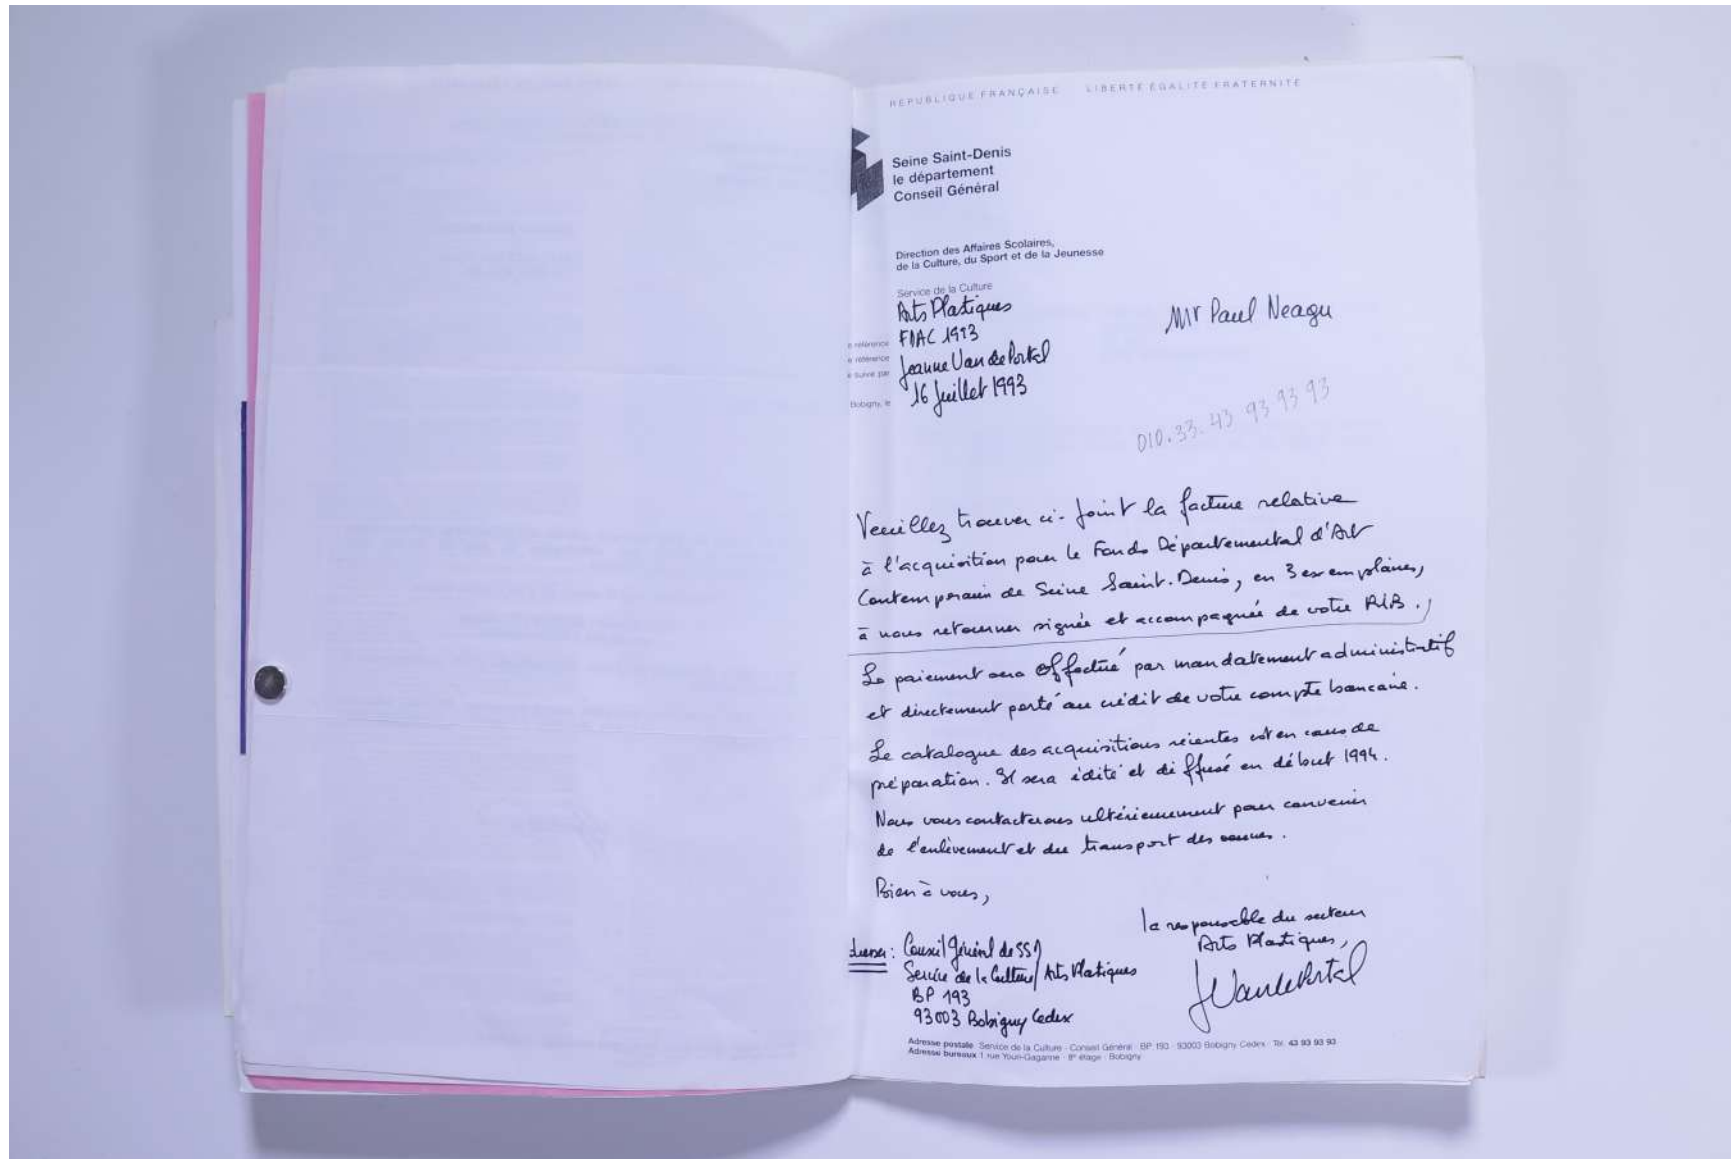 RÉPUBLIQUE FRANÇAISE LIBERTÉ ÉGALITÉ FRATERNITÉ
Seine Saint-Denis
le département
Conseil Général
Direction des Affaires Scolaires,
de la Culture, du Sport et de la Jeunesse
Service de la Culture
Arts Plastiques
Mr Paul Neagu
e référence FIAC 1993
e référence
e suivie par Jeanne Van de Portal
Bobigny, le 16 Juillet 1993
010.33.43 93 93 93
Veuillez trouver ci-joint la facture relative
à l'acquisition pour le Fonds Départemental d'Art
Contemporain de Seine Saint-Denis, en 3 exemplaires,
à nous retourner signée et accompagnée de votre RIB.
Le paiement sera effectué par mandatement administratif
et directement porté au crédit de votre compte bancaire.
Le catalogue des acquisitions récentes est en cours de
préparation. Il sera édité et diffusé en début 1994.
Nous vous contacterons ultérieurement pour convenir
de l'enlèvement et du transport des œuvres.
Bien à vous,
la responsable du secteur
Arts Plastiques,
JVandePortal
: Conseil Général de SSD
Service de la Culture/Arts Plastiques
BP 193
93003 Bobigny Cedex
Adresse postale Service de la Culture - Conseil Général - BP 193 - 93003 Bobigny Cedex - Tél. 43 93 93 93
Adresse bureaux 1 rue Youri-Gagarine - 8e étage - Bobigny